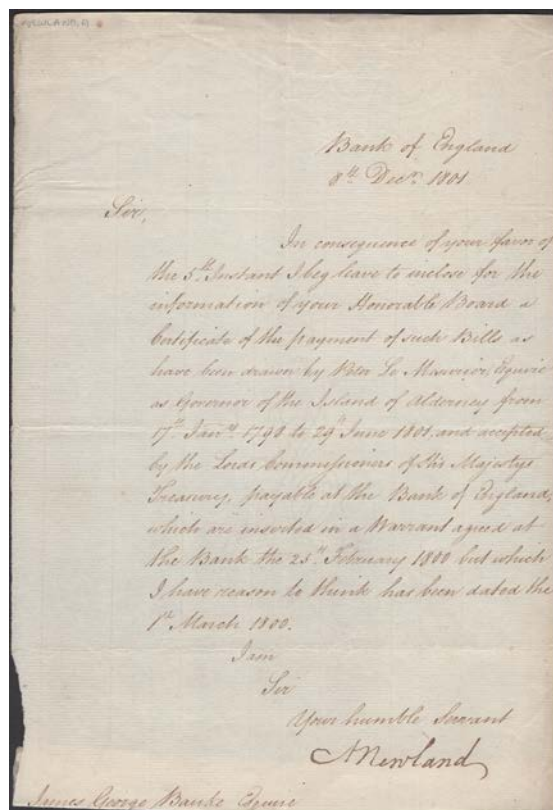 NEWLAND, A
Bank of England
8th. Decr. 1801
Sir,
In consequence of your favor of
the 5th. Instant I beg leave to inclose for the
information of your Honorable Board a
Certificate of the payment of such Bills as
have been drawn by Peter Le Mesurier, Esquire
as Governor of the Island of Alderney from
17th. Janry. to 29th June 1801. and accepted
by the Lords Commissioners of His Majestys
Treasury, payable at the Bank of England,
which are inserted in a Warrant agreed at
the Bank the 25th. February 1800 but which
I have reason to think has been dated the
1st. March 1800.
I am
Sir
Your humble Servant
A Newland
James George Banks Esquire